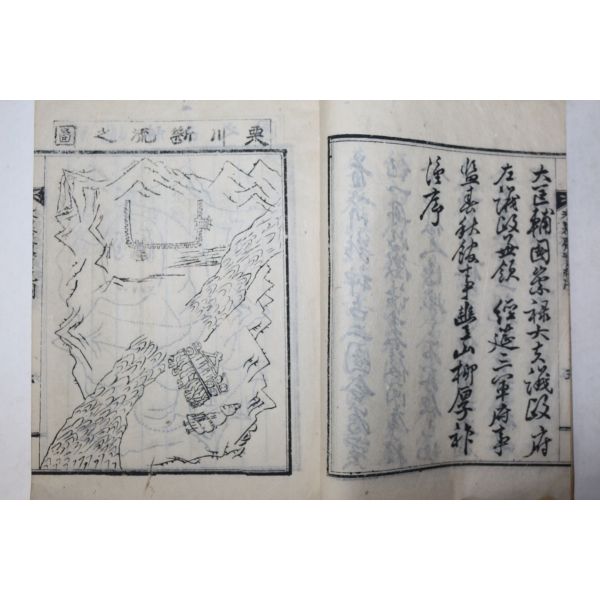 大匡輔國崇祿大夫議政府
左議政兼領 經筵三軍府事
監春秋館事豐山柳厚祚
謹序
栗川斷流之圖